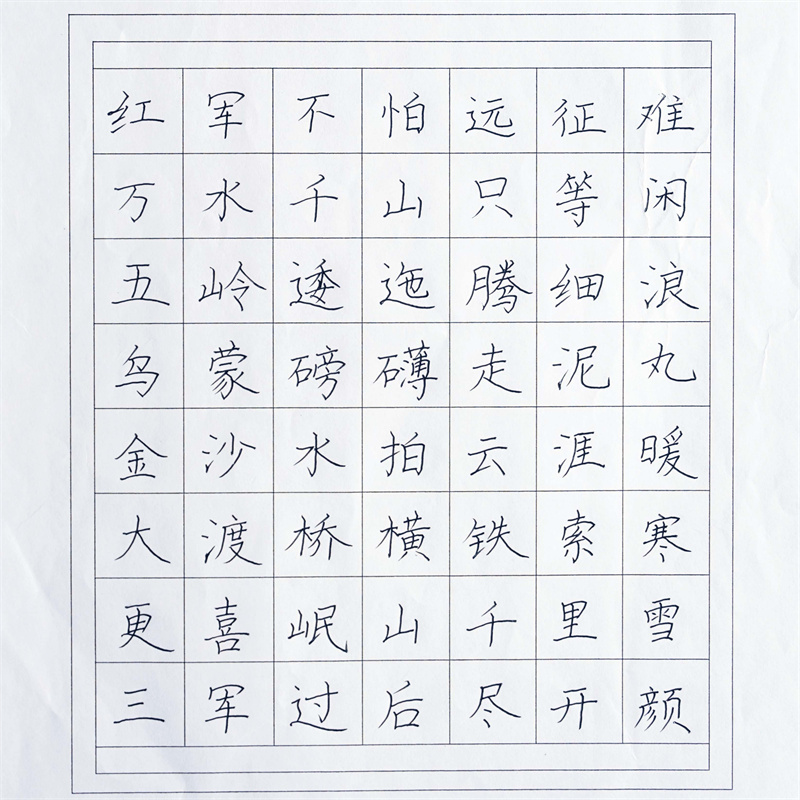 红军不怕远征难
万水千山只等闲
五岭逶迤腾细浪
乌蒙磅礴走泥丸
金沙水拍云涯暖
大渡桥横铁索寒
更喜岷山千里雪
三军过后尽开颜